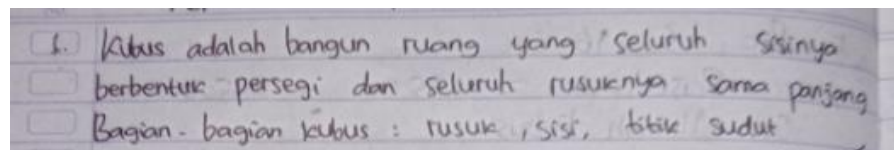 1. Kubus adalah bangun ruang yang seluruh sisinya
berbentuk persegi dan seluruh rusuknya sama panjang
Bagian-bagian kubus : rusuk, sisi, titik sudut